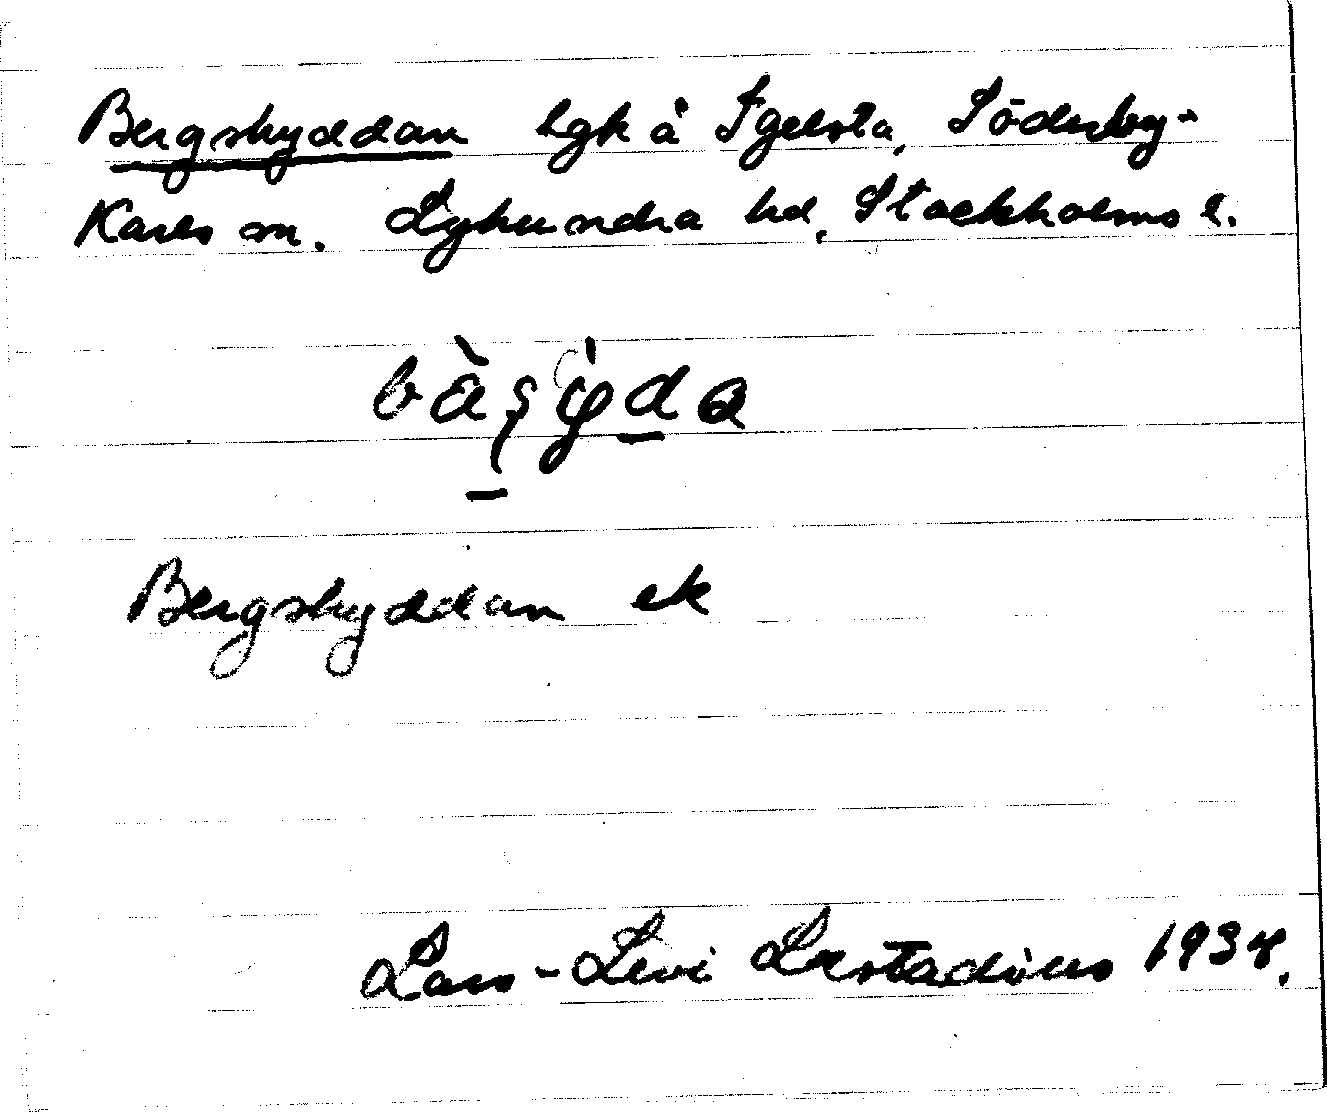 Bergskyddan lgh å Igelsta, Söderby-
Karls sn. Lyhundra hd, Stockholms l.
Bergskyddan ek
Lars-Levi Læstadius 1934.